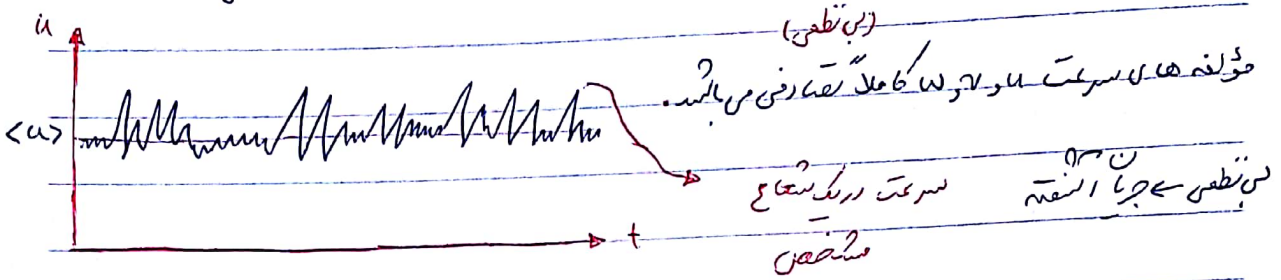 u
(بی نظمی)
مؤلفه های سرعت u و v و w کاملاً تصادفی می باشد.
<u>
بی نظمی ← جریان آشفته
سرعت در یک شعاع
مشخص
t